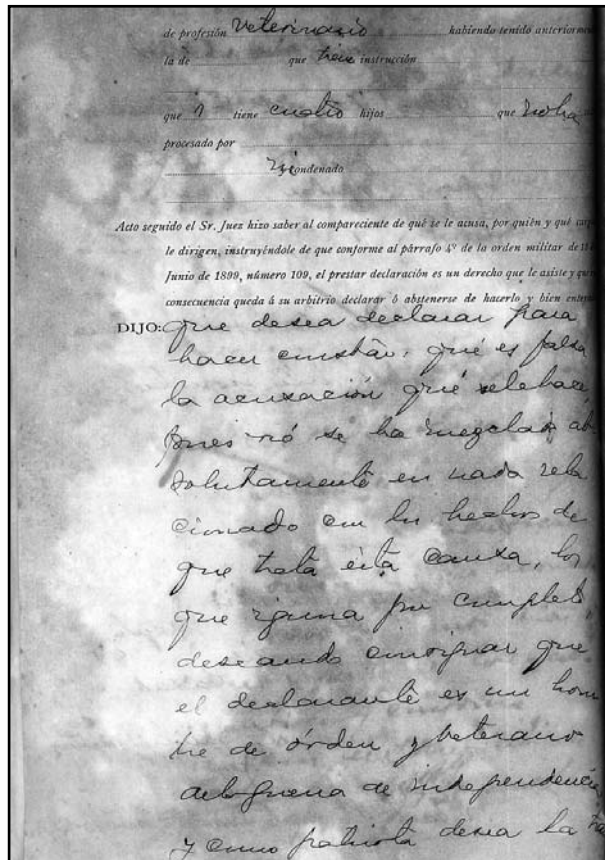 de profesión veterinario habiendo tenido anteriorme
la de que tiene instrucción
que tiene cuatro hijos que no ha
procesado por
ni condenado
Acto seguido el Sr. Juez hizo saber al compareciente de qué se le acusa, por quién y qué carg
le dirigen, instruyéndole de que conforme al párrafo 4º de la orden militar de 1
Junio de 1899, número 109, el prestar declaración es un derecho que le asiste y que
consecuencia queda á su arbitrio declarar ó abstenerse de hacerlo y bien enter
DIJO: que desea declarar para
hacer constar, qué es falsa
la acusación qué se le hace,
pues nó se ha mezclado ab
solutamente en nada rela
cionado con los hechos de
que trata ésta causa, los
que ignora por completo,
deseando consignar que
el declarante es un hom
bre de órden y veterano
de la guerra de independencia
y como patriota desea la